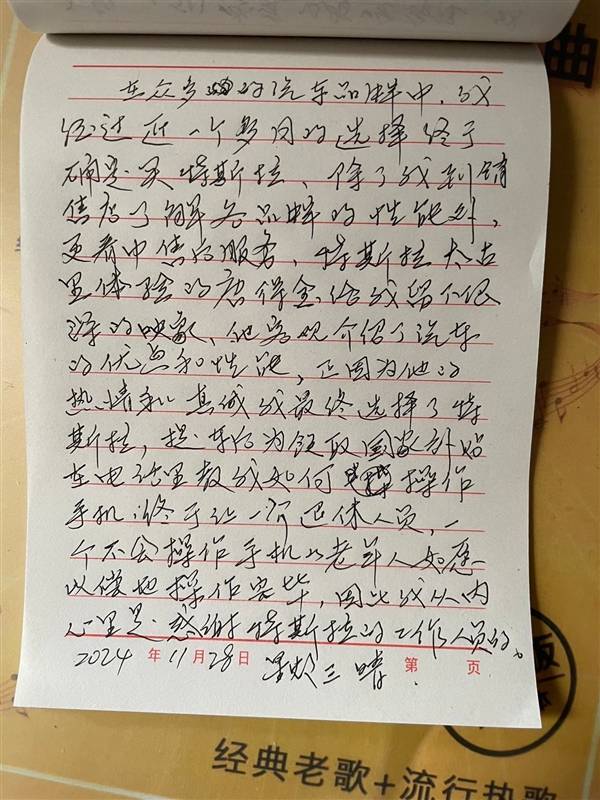 在众多的汽车品牌中,我
经过近一个多月的选择终于
确定买特斯拉、除了我到销
售店了解各品牌的性能外,
更看中售后服务、特斯拉太古
里体验的唐得金给我留下很
深的映象、他客观介绍了汽车
的优点和性能,正因为他的
热情和真诚我最终选择了特
斯拉,提车后为领取国家补贴
在电话里教我如何操作
手机;终于让一一位退休人员,一
个不会操作手机的老年人如愿
以偿地操作完毕,因此我从内
心里是感谢特斯拉的工作人员的。
2024年11月28日 三 第 页
曲
版
经典老歌+流行热歌